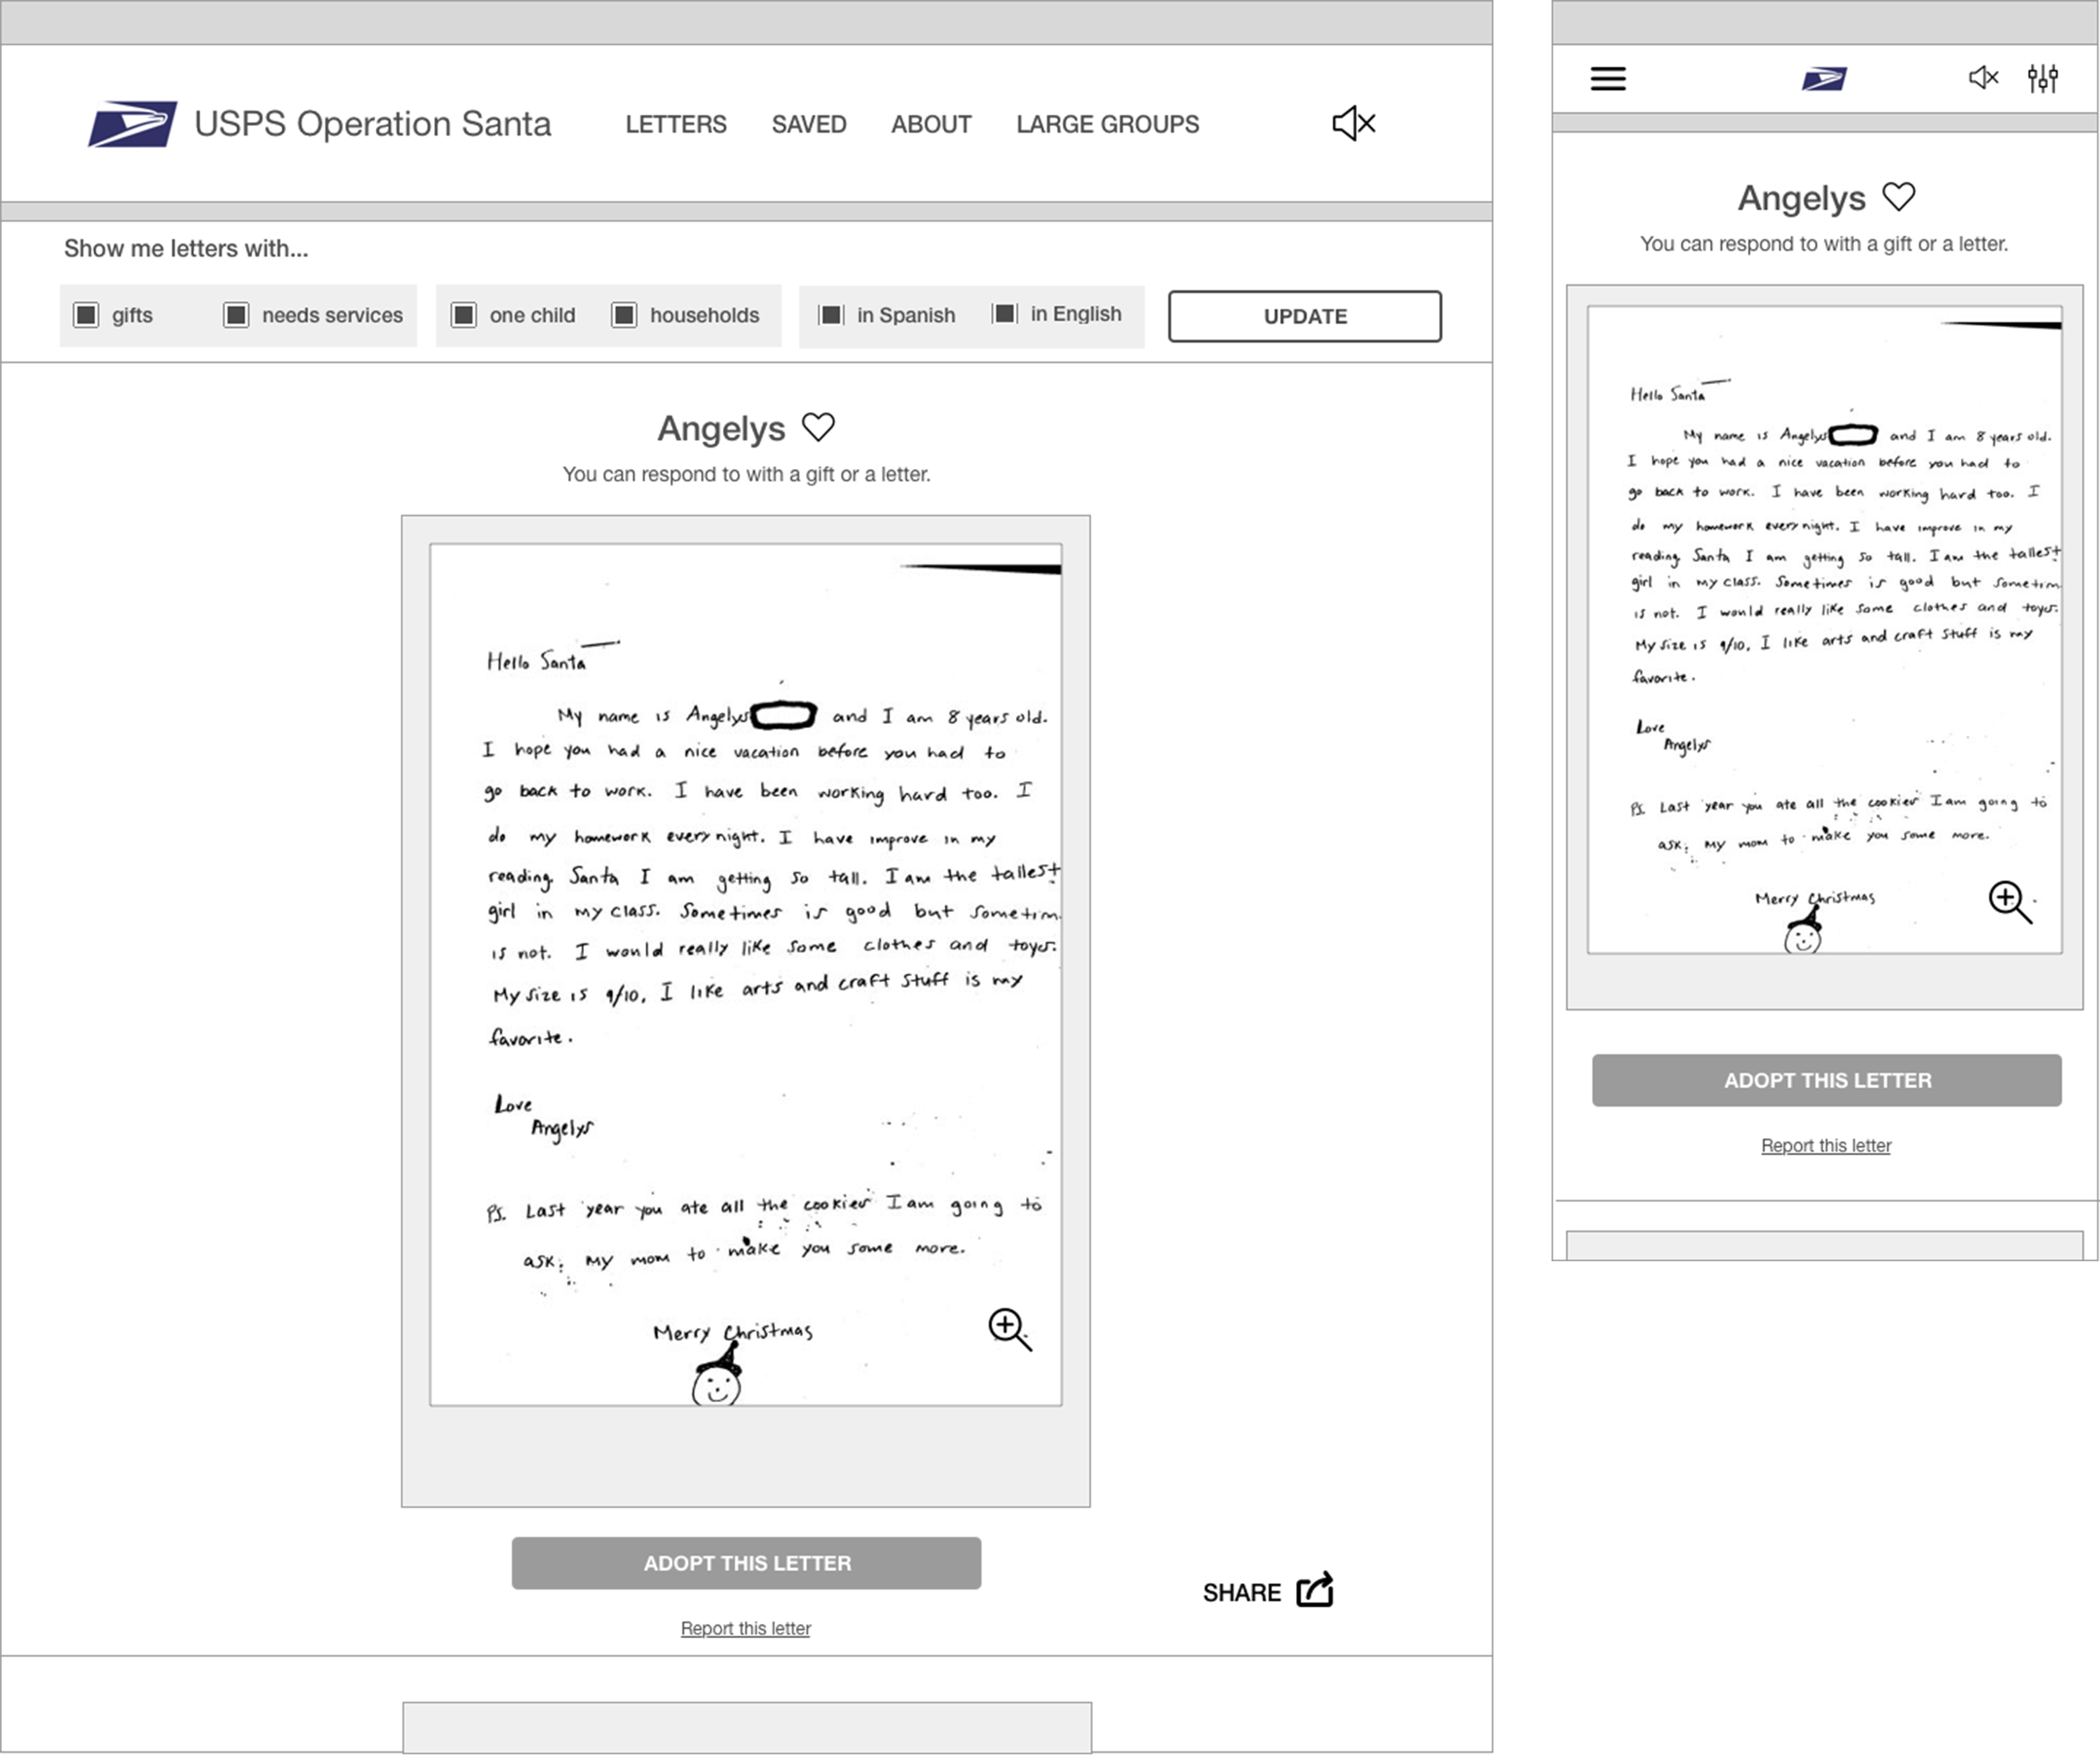 USPS Operation Santa LETTERS SAVED ABOUT LARGE GROUPS
Show me letters with...
gifts needs services one child households in Spanish in English UPDATE
Angelys
You can respond to with a gift or a letter.
Hello Santa
My name is Angelys and I am 8 years old.
I hope you had a nice vacation before you had to
go back to work. I have been working hard too. I
do my homework every night. I have improve in my
reading. Santa I am getting so tall. I am the tallest
girl in my class. Sometimes is good but sometim
is not. I would really like some clothes and toys.
My size is 9/10, I like arts and craft stuff is my
favorite.
Love
Angelys
PS. Last year you ate all the cookies I am going to
ask my mom to make you some more.
Merry Christmas
ADOPT THIS LETTER
SHARE
Report this letter
Angelys
You can respond to with a gift or a letter.
Hello Santa
My name is Angelys and I am 8 years old.
I hope you had a nice vacation before you had to
go back to work. I have been working hard too. I
do my homework every night. I have improve in my
reading. Santa I am getting so tall. I am the tallest
girl in my class. Sometimes is good but sometim
is not. I would really like some clothes and toys.
My size is 9/10, I like arts and craft stuff is my
favorite.
Love
Angelys
PS. Last year you ate all the cookies I am going to
ask my mom to make you some more.
Merry Christmas
ADOPT THIS LETTER
Report this letter